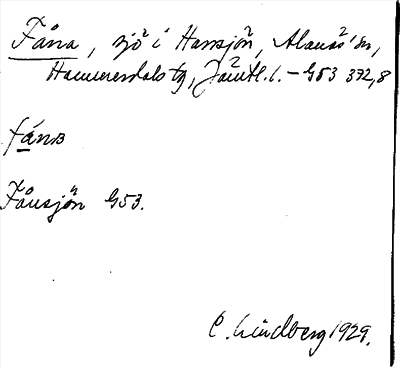 Fåna, sjö i Hansjön, Alanäs sn,
Hammerdals tg, Jämtl. l. – G53 372,8
fåna
Fånsjön G53.
C. Lindberg 1929.